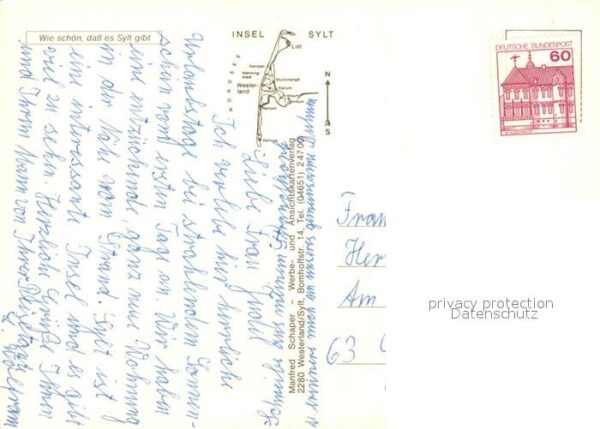 Wie schön, daß es Sylt gibt
INSEL SYLT
NORDSEE
List
Kampen
Wester-
land
N
S
Manfred Schaper – Werbe- und Ansichtskartenverlag
2280 Westerland/Sylt, Bomhoffstr. 14, Tel. (04651) 24700
DEUTSCHE BUNDESPOST
60
Liebe Frau
Ich verlebe hier herrliche
Urlaubstage bei strahlendem Sonnen-
schein vom ersten Tage an. Wir haben
eine entzückende, ganz neue Wohnung
in der Nähe vom Strand. Sylt ist
eine interessante Insel und es gibt
viel zu sehen. Herzliche Grüße Ihnen
und Ihrem Mann von Ihrer
Frau
Her
Am
63
privacy protection
Datenschutz